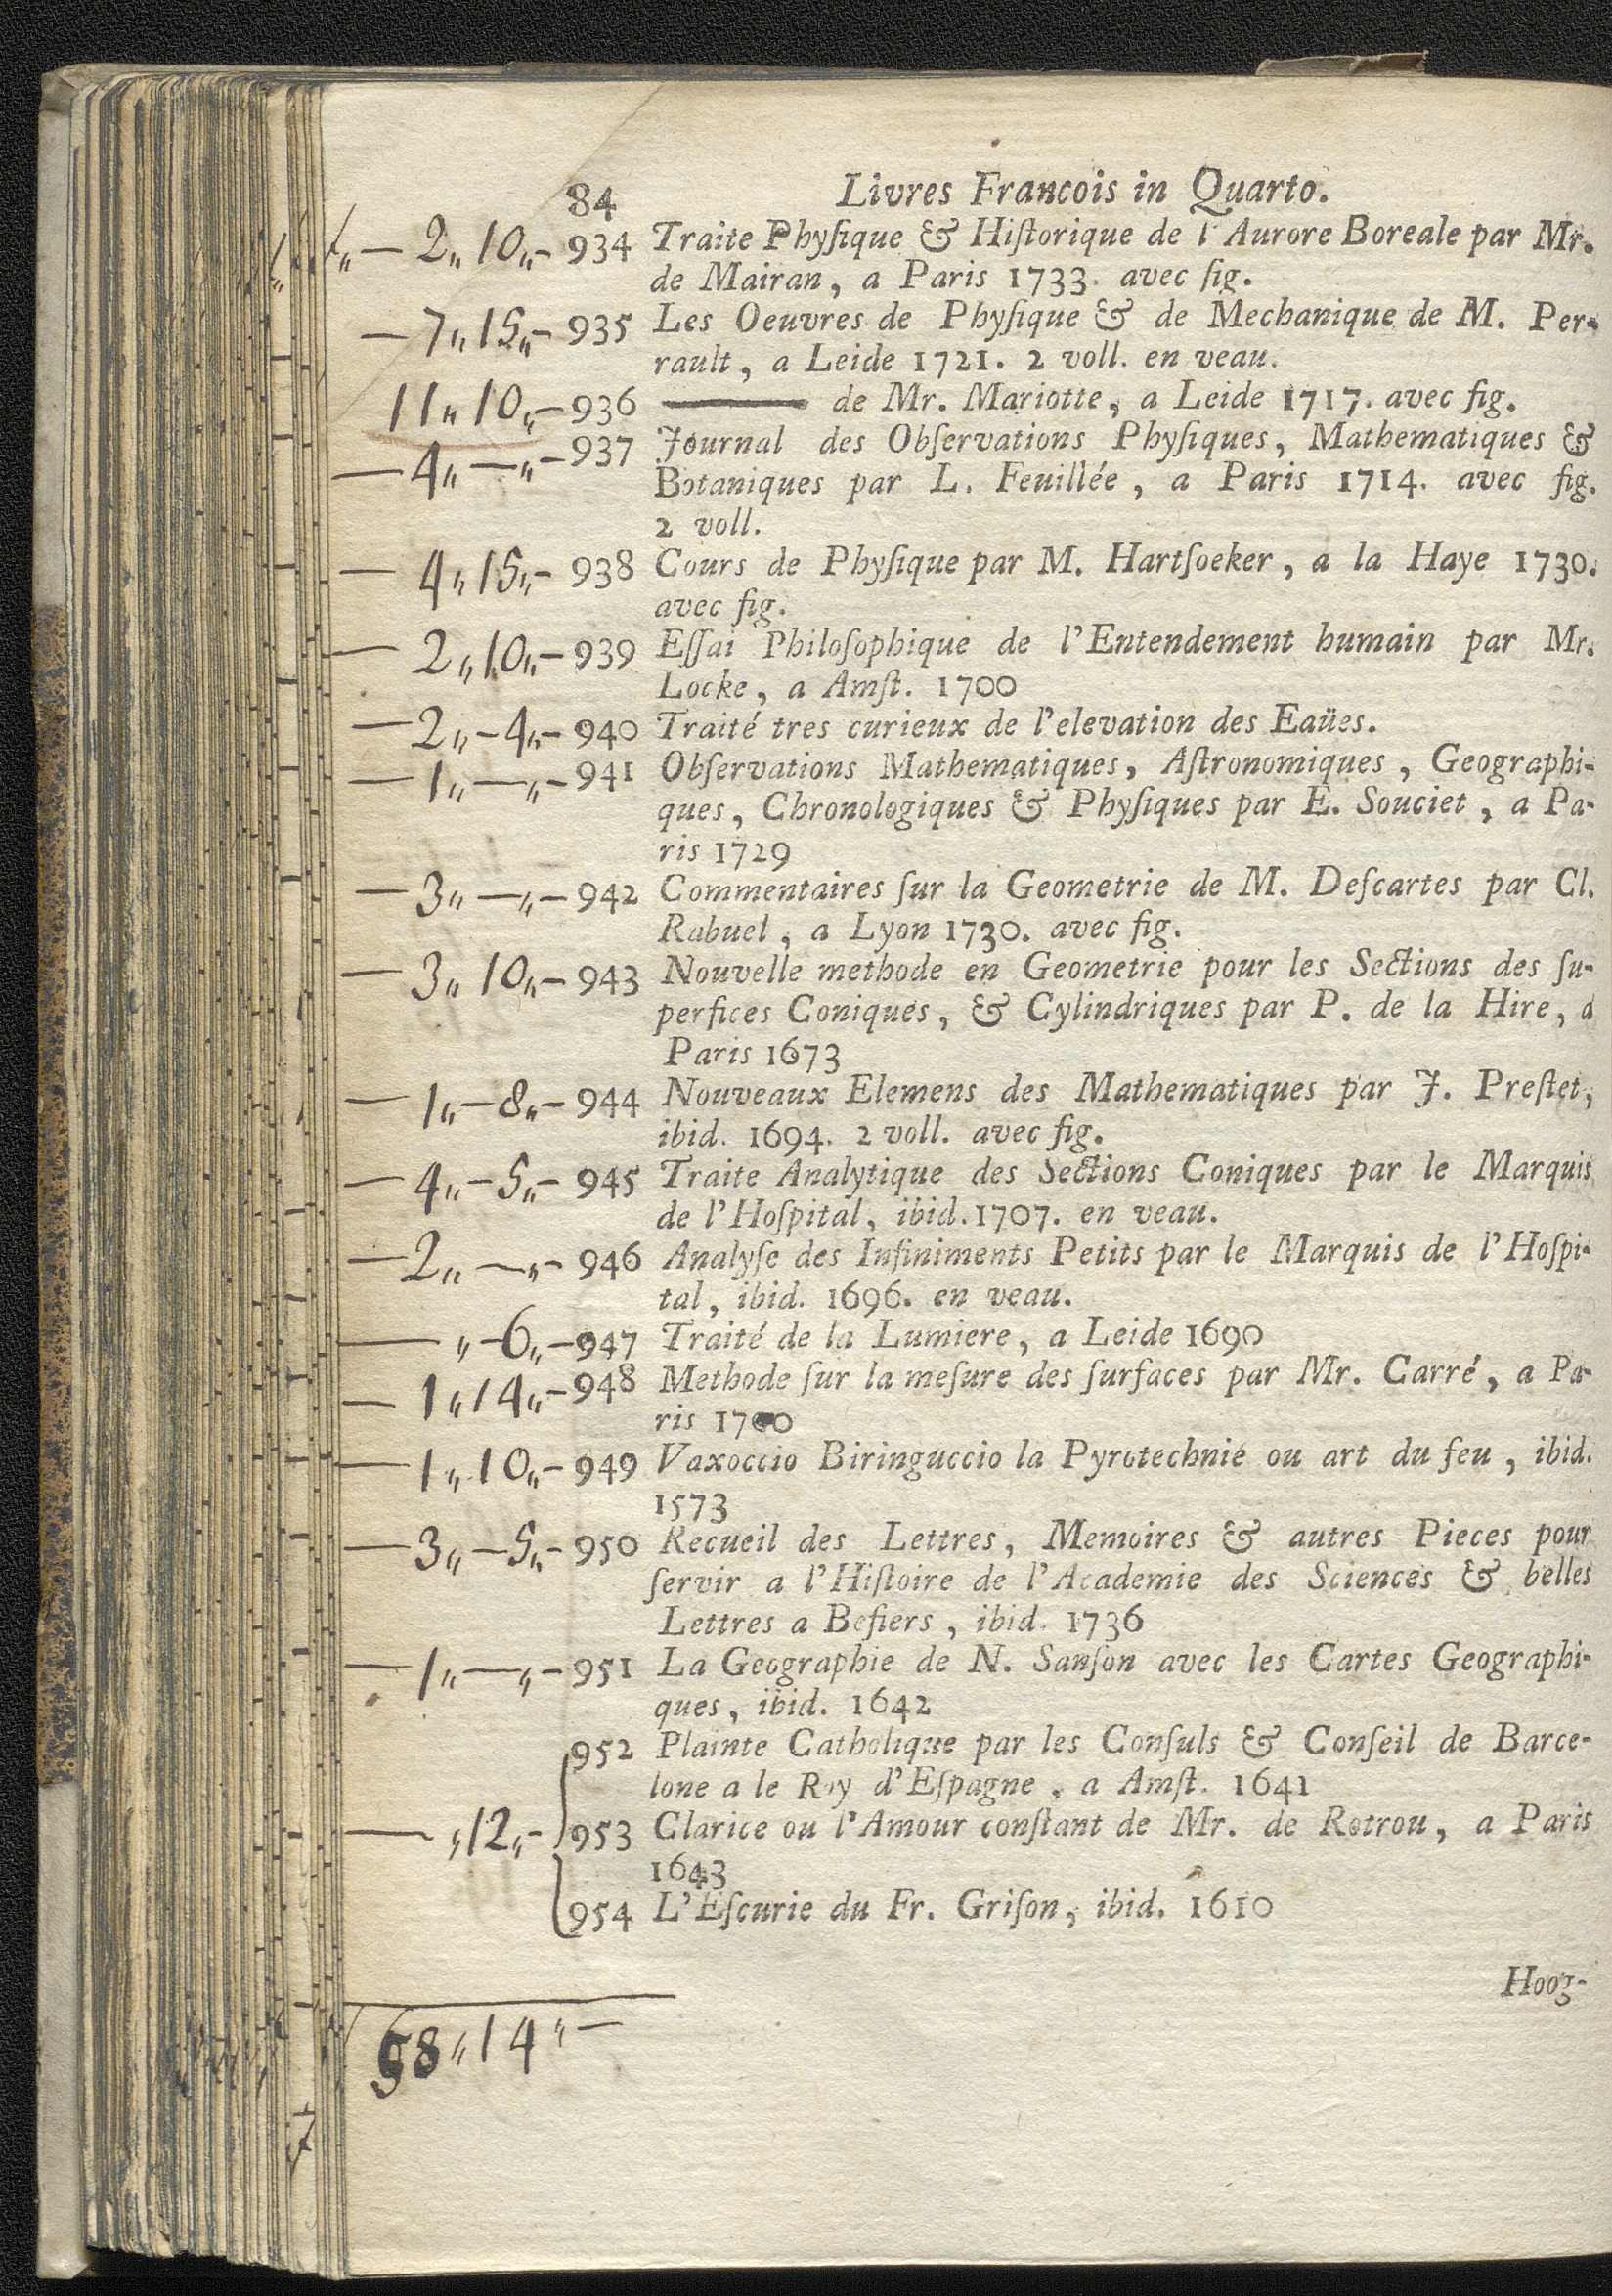 84 Livres Francois in Quarto.
f„ — 2„ 10„ - 934 Traite Phyſique & Hiſtorique de l'Aurore Boreale par Mr.
de Mairan, a Paris 1733. avec fig.
— 7„ 15„ - 935 Les Oeuvres de Phyſique & de Mechanique de M. Per-
rault, a Leide 1721. 2 voll. en veau.
11„ 10„ - 936 ——— de Mr. Mariotte, a Leide 1717. avec fig.
— 4„ — „ - 937 Journal des Obſervations Phyſiques, Mathematiques &
Botaniques par L. Feuillée, a Paris 1714. avec fig.
2 voll.
— 4„ 15„ - 938 Cours de Phyſique par M. Hartſoeker, a la Haye 1730.
avec fig.
— 2„ 10„ - 939 Eſſai Philoſophique de l'Entendement humain par Mr.
Locke, a Amſt. 1700
— 2„ - 4„ - 940 Traité tres curieux de l'elevation des Eaües.
— 1„ — „ - 941 Obſervations Mathematiques, Aſtronomiques, Geographi-
ques, Chronologiques & Phyſiques par E. Souciet, a Pa-
ris 1729
— 3„ — „ - 942 Commentaires ſur la Geometrie de M. Deſcartes par Cl.
Rabuel, a Lyon 1730. avec fig.
— 3„ 10„ - 943 Nouvelle methode en Geometrie pour les Sections des ſu-
perfices Coniques, & Cylindriques par P. de la Hire, a
Paris 1673
— 1„ - 8„ - 944 Nouveaux Elemens des Mathematiques par J. Preſtet,
ibid. 1694. 2 voll. avec fig.
— 4„ - 5„ - 945 Traite Analytique des Sections Coniques par le Marquis
de l'Hoſpital, ibid. 1707. en veau.
— 2„ — „ - 946 Analyſe des Infiniments Petits par le Marquis de l'Hoſpi-
tal, ibid. 1696. en veau.
— „ - 6„ - 947 Traité de la Lumiere, a Leide 1690
— 1„ 14„ - 948 Methode ſur la meſure des ſurfaces par Mr. Carré, a Pa-
ris 1700
— 1„ 10„ - 949 Vaxoccio Biringuccio la Pyrotechnie ou art du feu, ibid.
1573
— 3„ - 5„ - 950 Recueil des Lettres, Memoires & autres Pieces pour
ſervir a l'Hiſtoire de l'Academie des Sciences & belles
Lettres a Beſiers, ibid. 1736
— 1„ — „ - 951 La Geographie de N. Sanſon avec les Cartes Geographi-
ques, ibid. 1642
952 Plainte Catholique par les Conſuls & Conſeil de Barce-
lone a le Roy d'Eſpagne, a Amſt. 1641
— „ 12„ - 953 Clarice ou l'Amour conſtant de Mr. de Rotrou, a Paris
1643
954 L'Eſcurie du Fr. Griſon, ibid. 1610
Hoog-
58„ 14„ —